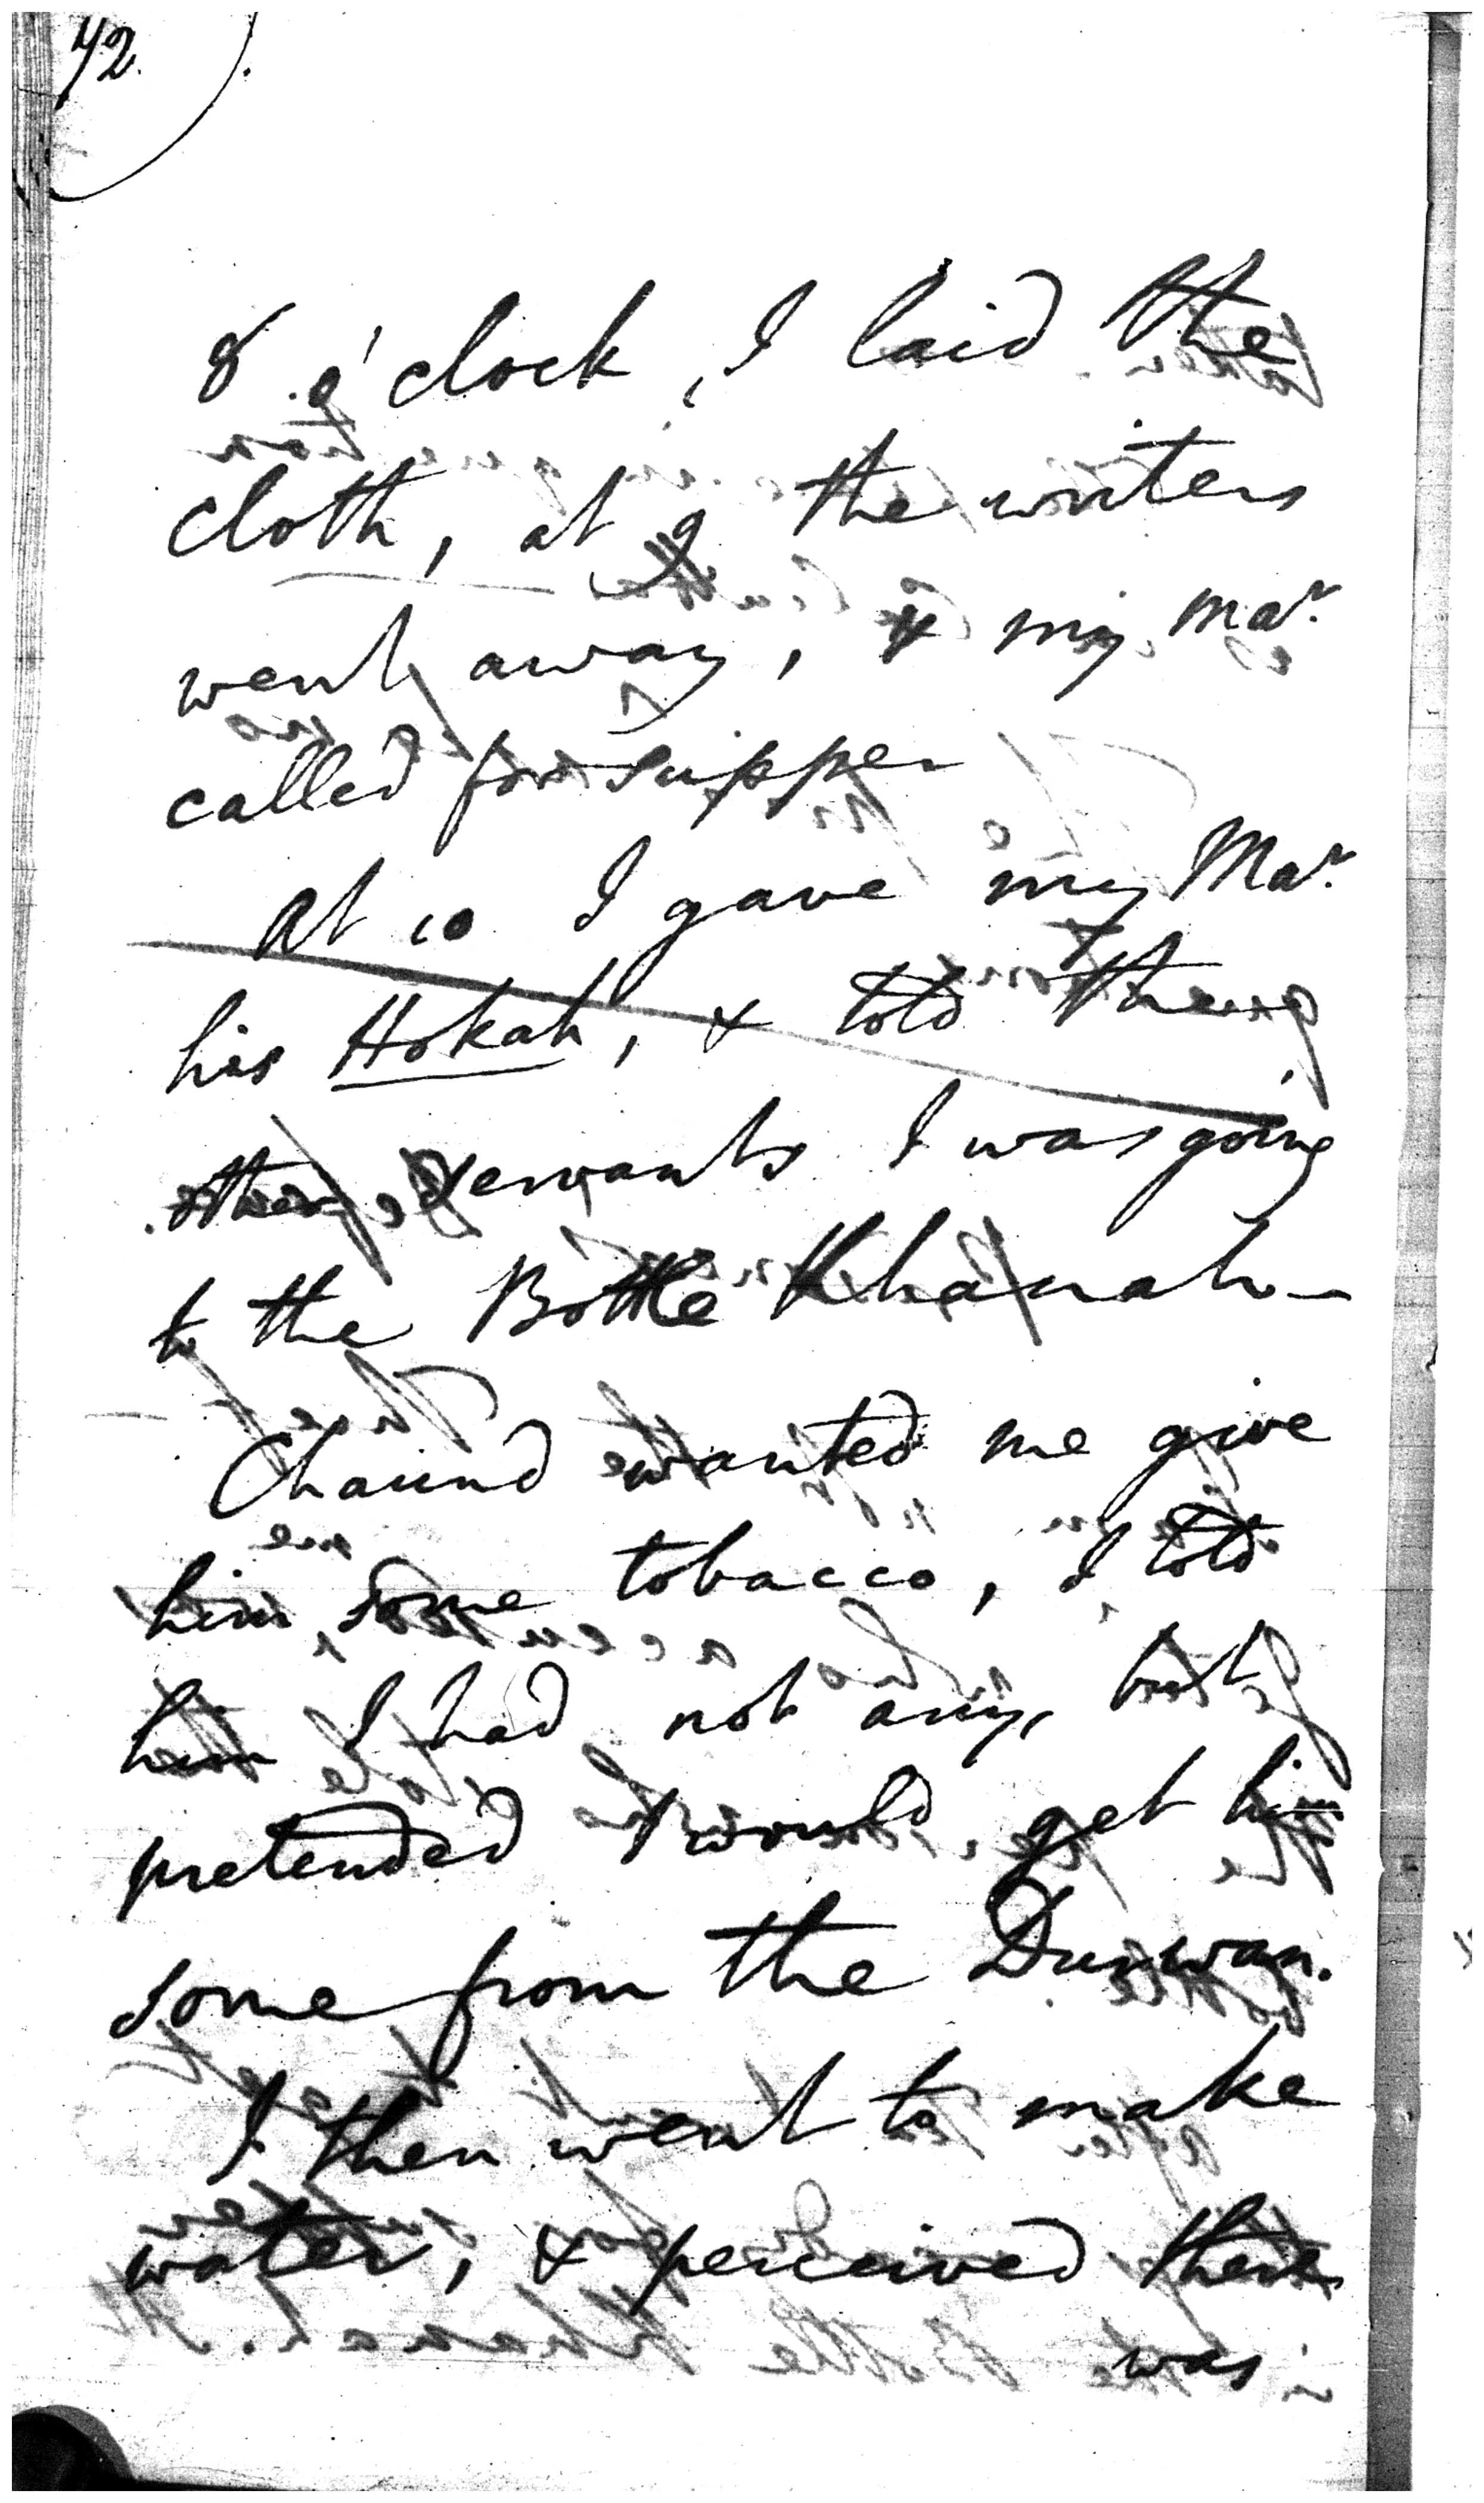 72.
8 o'clock, I laid the
cloth, at 9 the writers
went away, & my Mar.
called for supper
At 10 I gave my Mar.
his Hokah, & told the
other servants I was going
to the Bottle Khanah -
Chaund wanted me give
him some tobacco, I told
him I had not any, but
pretended I would get him
some from the Durwan.
I then went to make
water, & perceived there
was